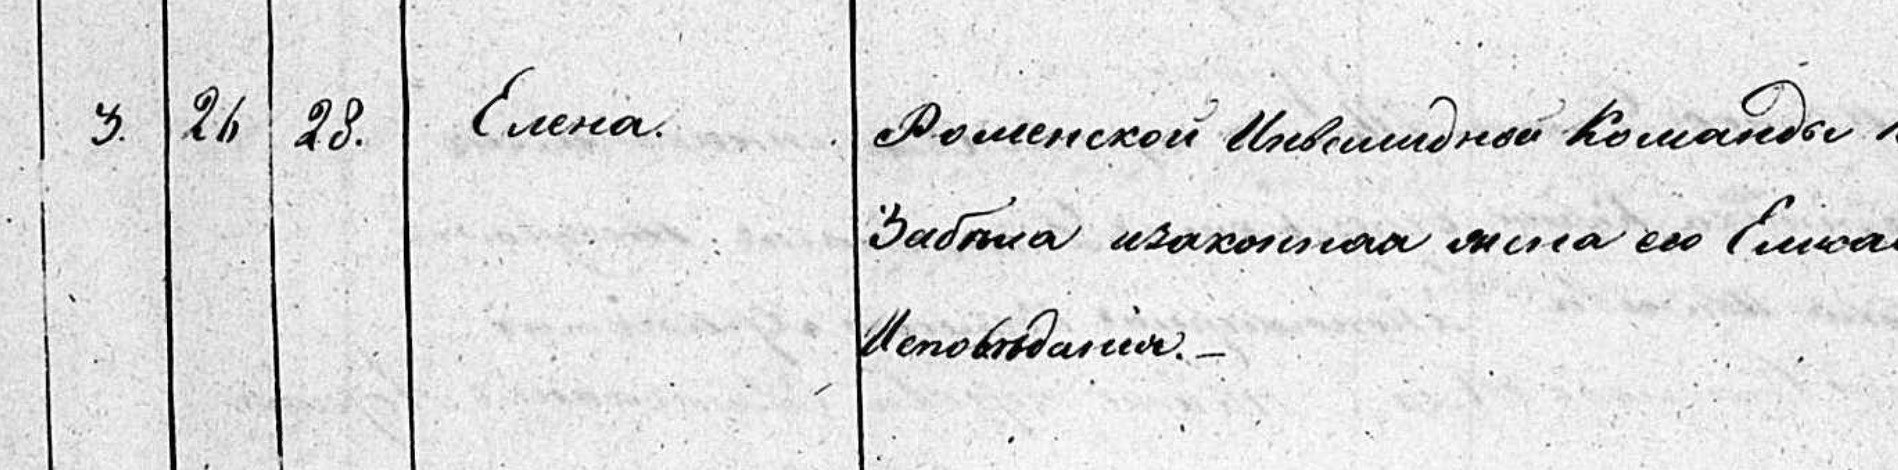 3. 26 28. Елена. Роменской Инвалидной Команды
Забѣла изаконная жена его
Исповѣданія. –